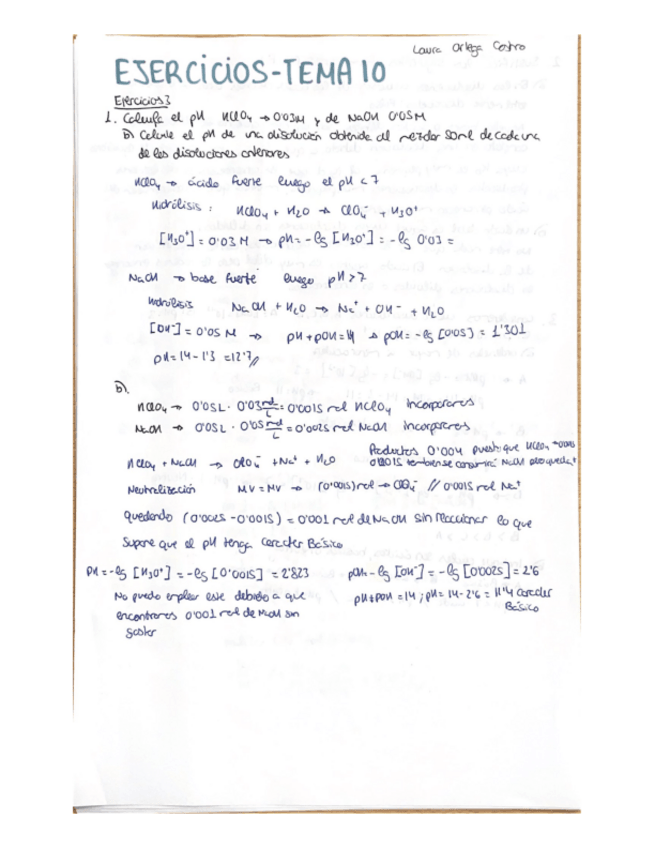 Laura Ortega Castro
EJERCICIOS-TEMA 10
Ejercicios 3
1. Calcula el pH HClO4 → 0'03M y de NaOH 0'05M
b) Calcule el pH de una disolución obtenida al mezclar 50ml de cada una
de las disoluciones anteriores
HClO4 → ácido fuerte luego el pH < 7
Hidrólisis: HClO4 + H2O → ClO4⁻ + H3O⁺
[H3O⁺] = 0'03 M → pH = -lg [H3O⁺] = -lg 0'03 =
NaOH → base fuerte luego pH > 7
Hidrólisis NaOH + H2O → Na⁺ + OH⁻ + H2O
[OH⁻] = 0'05 M → pH + pOH = 14 → pOH = -lg [0'05] = 1'301
pH = 14 - 1'3 = 12'7 //
b).
HClO4 → 0'05L · 0'03 mol/L = 0'0015 mol HClO4 incorporamos
NaOH → 0'05L · 0'05 mol/L = 0'0025 mol NaOH incorporamos
Productos 0'004 puesto que HClO4 → 0'0015
HClO4 + NaOH → ClO4⁻ + Na⁺ + H2O
0'0015 también se consumirá NaOH
Neutralización M.V = M.V → (0'0015) mol → ClO4⁻ // 0'0015 mol Na⁺
quedando (0'0025 - 0'0015) = 0'001 mol de NaOH sin reaccionar lo que
supone que el pH tenga carácter Básico
pH = -lg [H3O⁺] = -lg [0'0015] = 2'823
pOH - lg [OH⁻] = -lg [0'0025] = 2'6
No puedo emplear este debido a que
encontramos 0'001 mol de NaOH sin
gastar
pH + pOH = 14 ; pH = 14 - 2'6 = 11'4 carácter
Básico